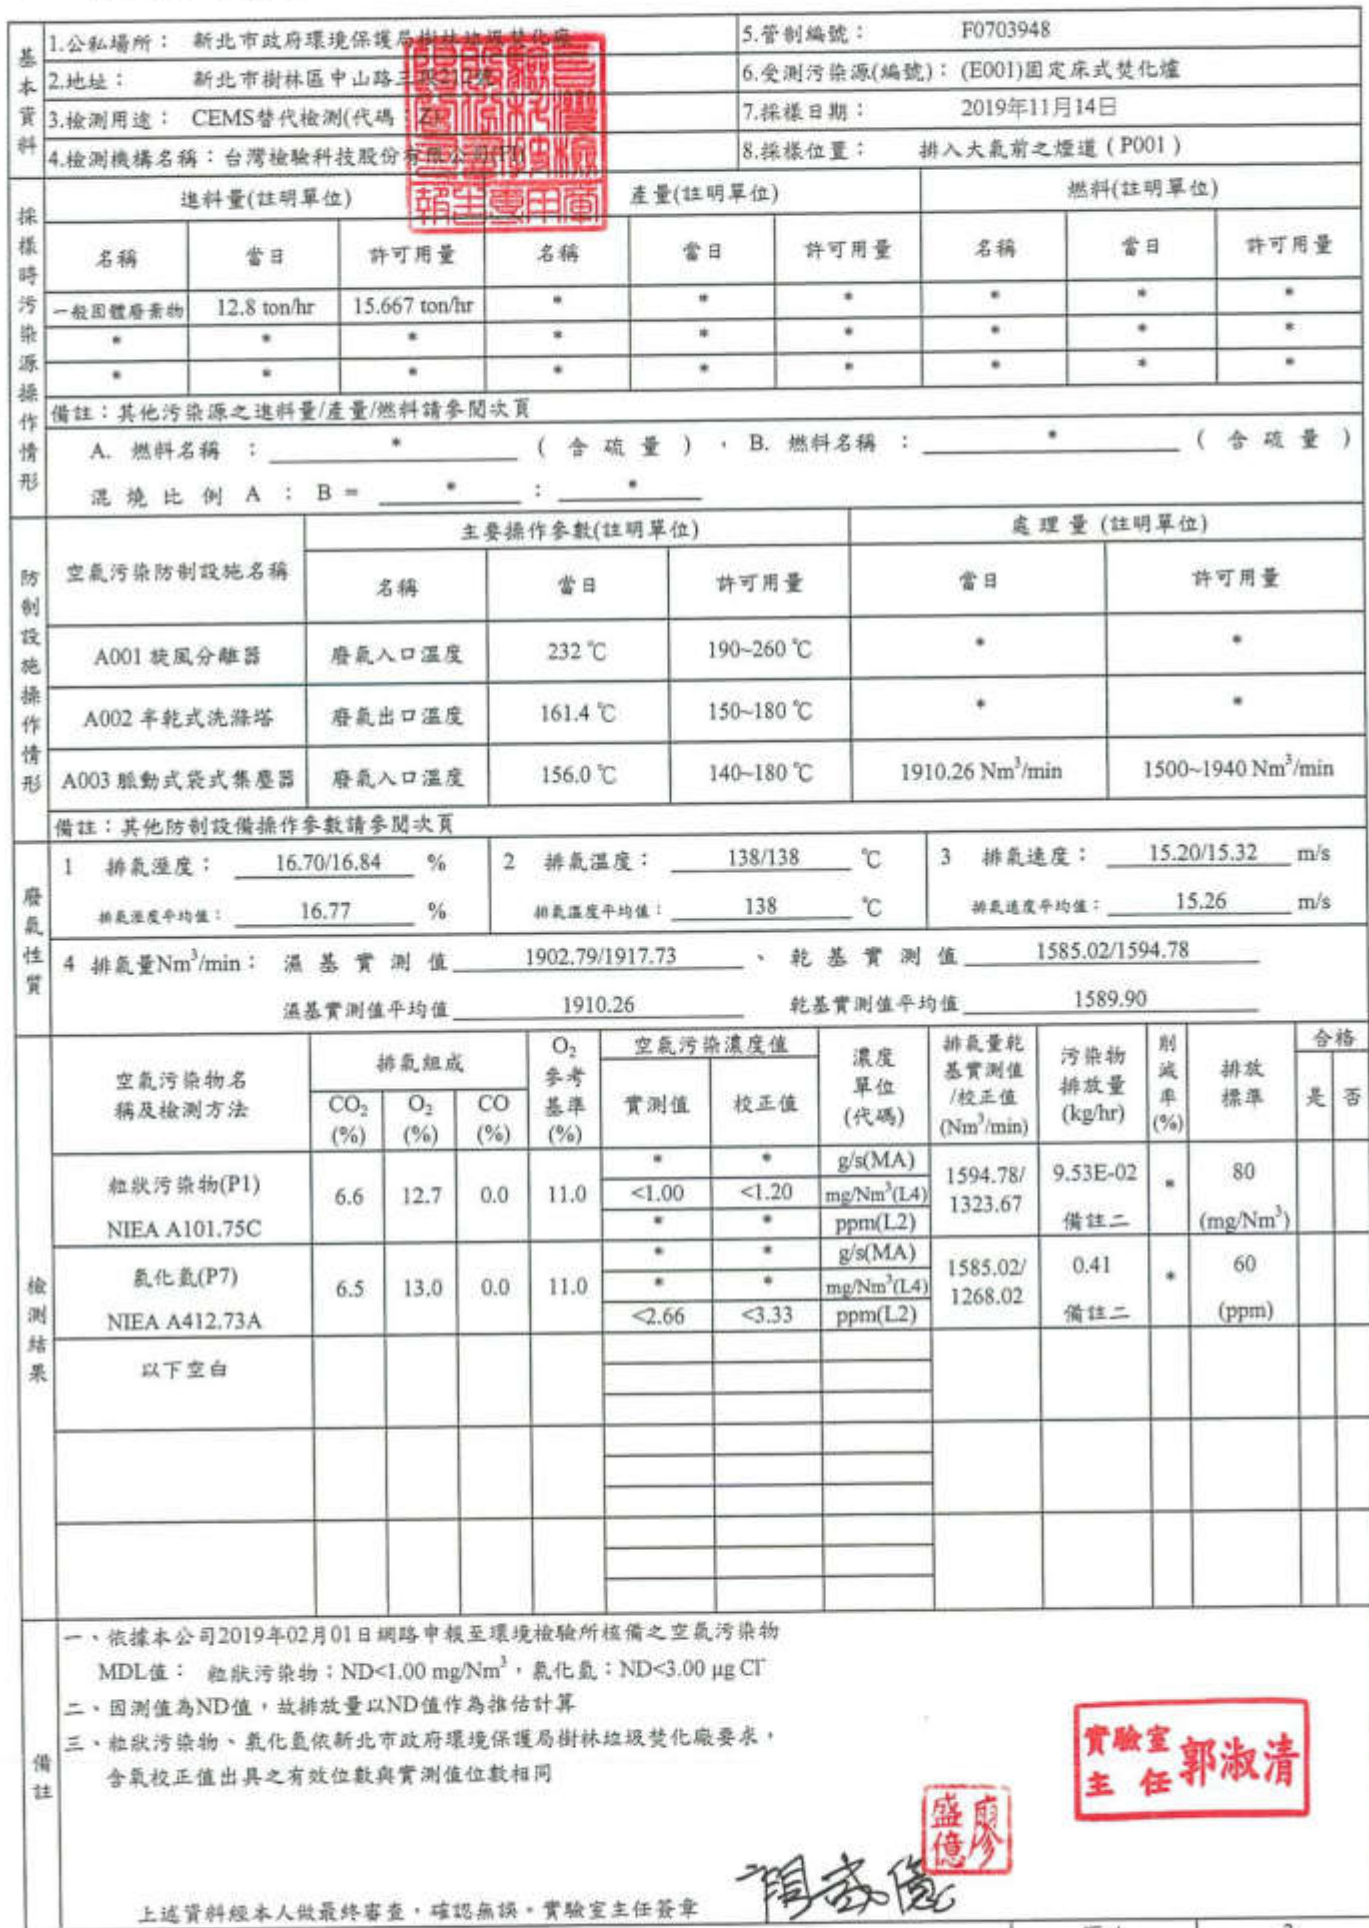 基本資料
1.公私場所： 新北市政府環境保護局樹林垃圾焚化廠
5.管制編號： F0703948
2.地址： 新北市樹林區中山路三段212號
6.受測污染源(編號)： (E001)固定床式焚化爐
3.檢測用途： CEMS替代檢測(代碼 Z)
7.採樣日期： 2019年11月14日
4.檢測機構名稱：台灣檢驗科技股份有限公司(FI)
8.採樣位置： 排入大氣前之煙道 ( P001 )
採樣時污染源操作情形
進料量(註明單位) 產量(註明單位) 燃料(註明單位)
名稱 當日 許可用量 名稱 當日 許可用量 名稱 當日 許可用量
一般固體廢棄物 12.8 ton/hr 15.667 ton/hr * * * * * *
* * * * * * * * *
* * * * * * * * *
備註：其他污染源之進料量/產量/燃料請參閱次頁
A. 燃料名稱 ： * ( 含 硫 量 ) ， B. 燃料名稱 ： * ( 含 硫 量 )
混 燒 比 例 A : B = * : *
防制設施操作情形
空氣污染防制設施名稱 主要操作參數(註明單位) 處 理 量 (註明單位)
名稱 當日 許可用量 當日 許可用量
A001 旋風分離器 廢氣入口溫度 232 ℃ 190~260 ℃ * *
A002 半乾式洗滌塔 廢氣出口溫度 161.4 ℃ 150~180 ℃ * *
A003 脈動式袋式集塵器 廢氣入口溫度 156.0 ℃ 140~180 ℃ 1910.26 Nm³/min 1500~1940 Nm³/min
備註：其他防制設備操作參數請參閱次頁
廢氣性質
1 排氣溼度： 16.70/16.84 % 2 排氣溫度： 138/138 ℃ 3 排氣速度： 15.20/15.32 m/s
排氣溼度平均值： 16.77 % 排氣溫度平均值： 138 ℃ 排氣速度平均值： 15.26 m/s
4 排氣量Nm³/min： 濕 基 實 測 值 1902.79/1917.73 、 乾 基 實 測 值 1585.02/1594.78
濕基實測值平均值 1910.26 乾基實測值平均值 1589.90
檢測結果
空氣污染物名稱及檢測方法 排氣組成 O₂參考基準(%) 空氣污染濃度值 濃度單位(代碼) 排氣量乾基實測值/校正值(Nm³/min) 污染物排放量(kg/hr) 削減率(%) 排放標準 合格
CO₂(%) O₂(%) CO(%) 實測值 校正值 是 否
粒狀污染物(P1) NIEA A101.75C 6.6 12.7 0.0 11.0 * * g/s(MA) 1594.78/1323.67 9.53E-02 備註二 * 80 (mg/Nm³)
<1.00 <1.20 mg/Nm³(L4)
* * ppm(L2)
氯化氫(P7) NIEA A412.73A 6.5 13.0 0.0 11.0 * * g/s(MA) 1585.02/1268.02 0.41 備註二 * 60 (ppm)
* * mg/Nm³(L4)
<2.66 <3.33 ppm(L2)
以下空白
備註
一、依據本公司2019年02月01日網路申報至環境檢驗所核備之空氣污染物
MDL值： 粒狀污染物：ND<1.00 mg/Nm³，氯化氫：ND<3.00 μg Cl⁻
二、因測值為ND值，故排放量以ND值作為推估計算
三、粒狀污染物、氯化氫依新北市政府環境保護局樹林垃圾焚化廠要求，
含氧校正值出具之有效位數與實測值位數相同
實驗室主任 郭淑清
廖盛億
上述資料經本人做最終審查，確認無誤。實驗室主任簽章